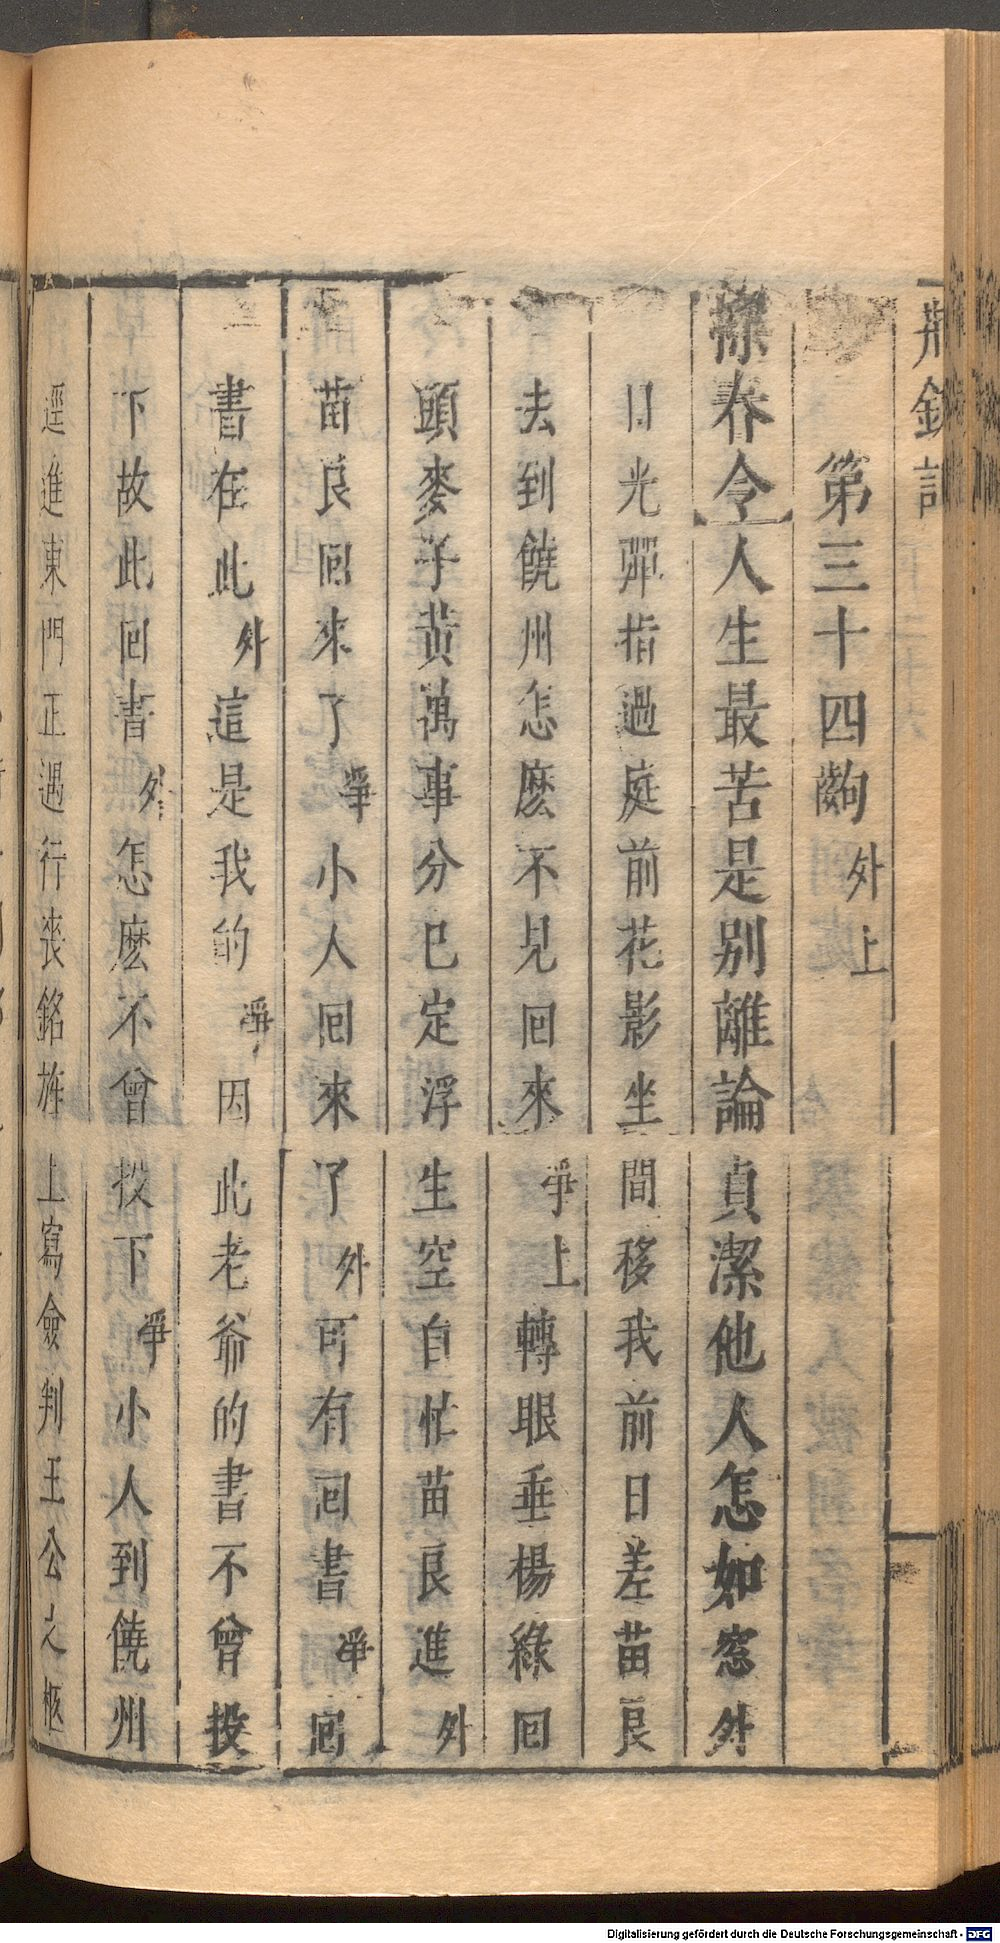 荆釵記
第三十四齣 外上
探春令人生最苦是别離論貞潔他人怎如窓外
日光彈指過庭前花影坐間移我前日差苗良
去到饒州怎麽不見囘來 爭上 轉眼垂楊綠囘
頭麥子黃萬事分已定浮生空自忙苗良進 外
苗良囘來了 爭 小人囘來了 外 可有囘書 爭 囘
書在此 外 這是我的 爭 因此老爺的書不曾投
下故此回書 外 怎麽不曾投下 爭 小人到饒州
逕進東門正遇行喪銘旌上寫僉判王公之柩
Digitalisierung gefördert durch die Deutsche Forschungsgemeinschaft - DFG